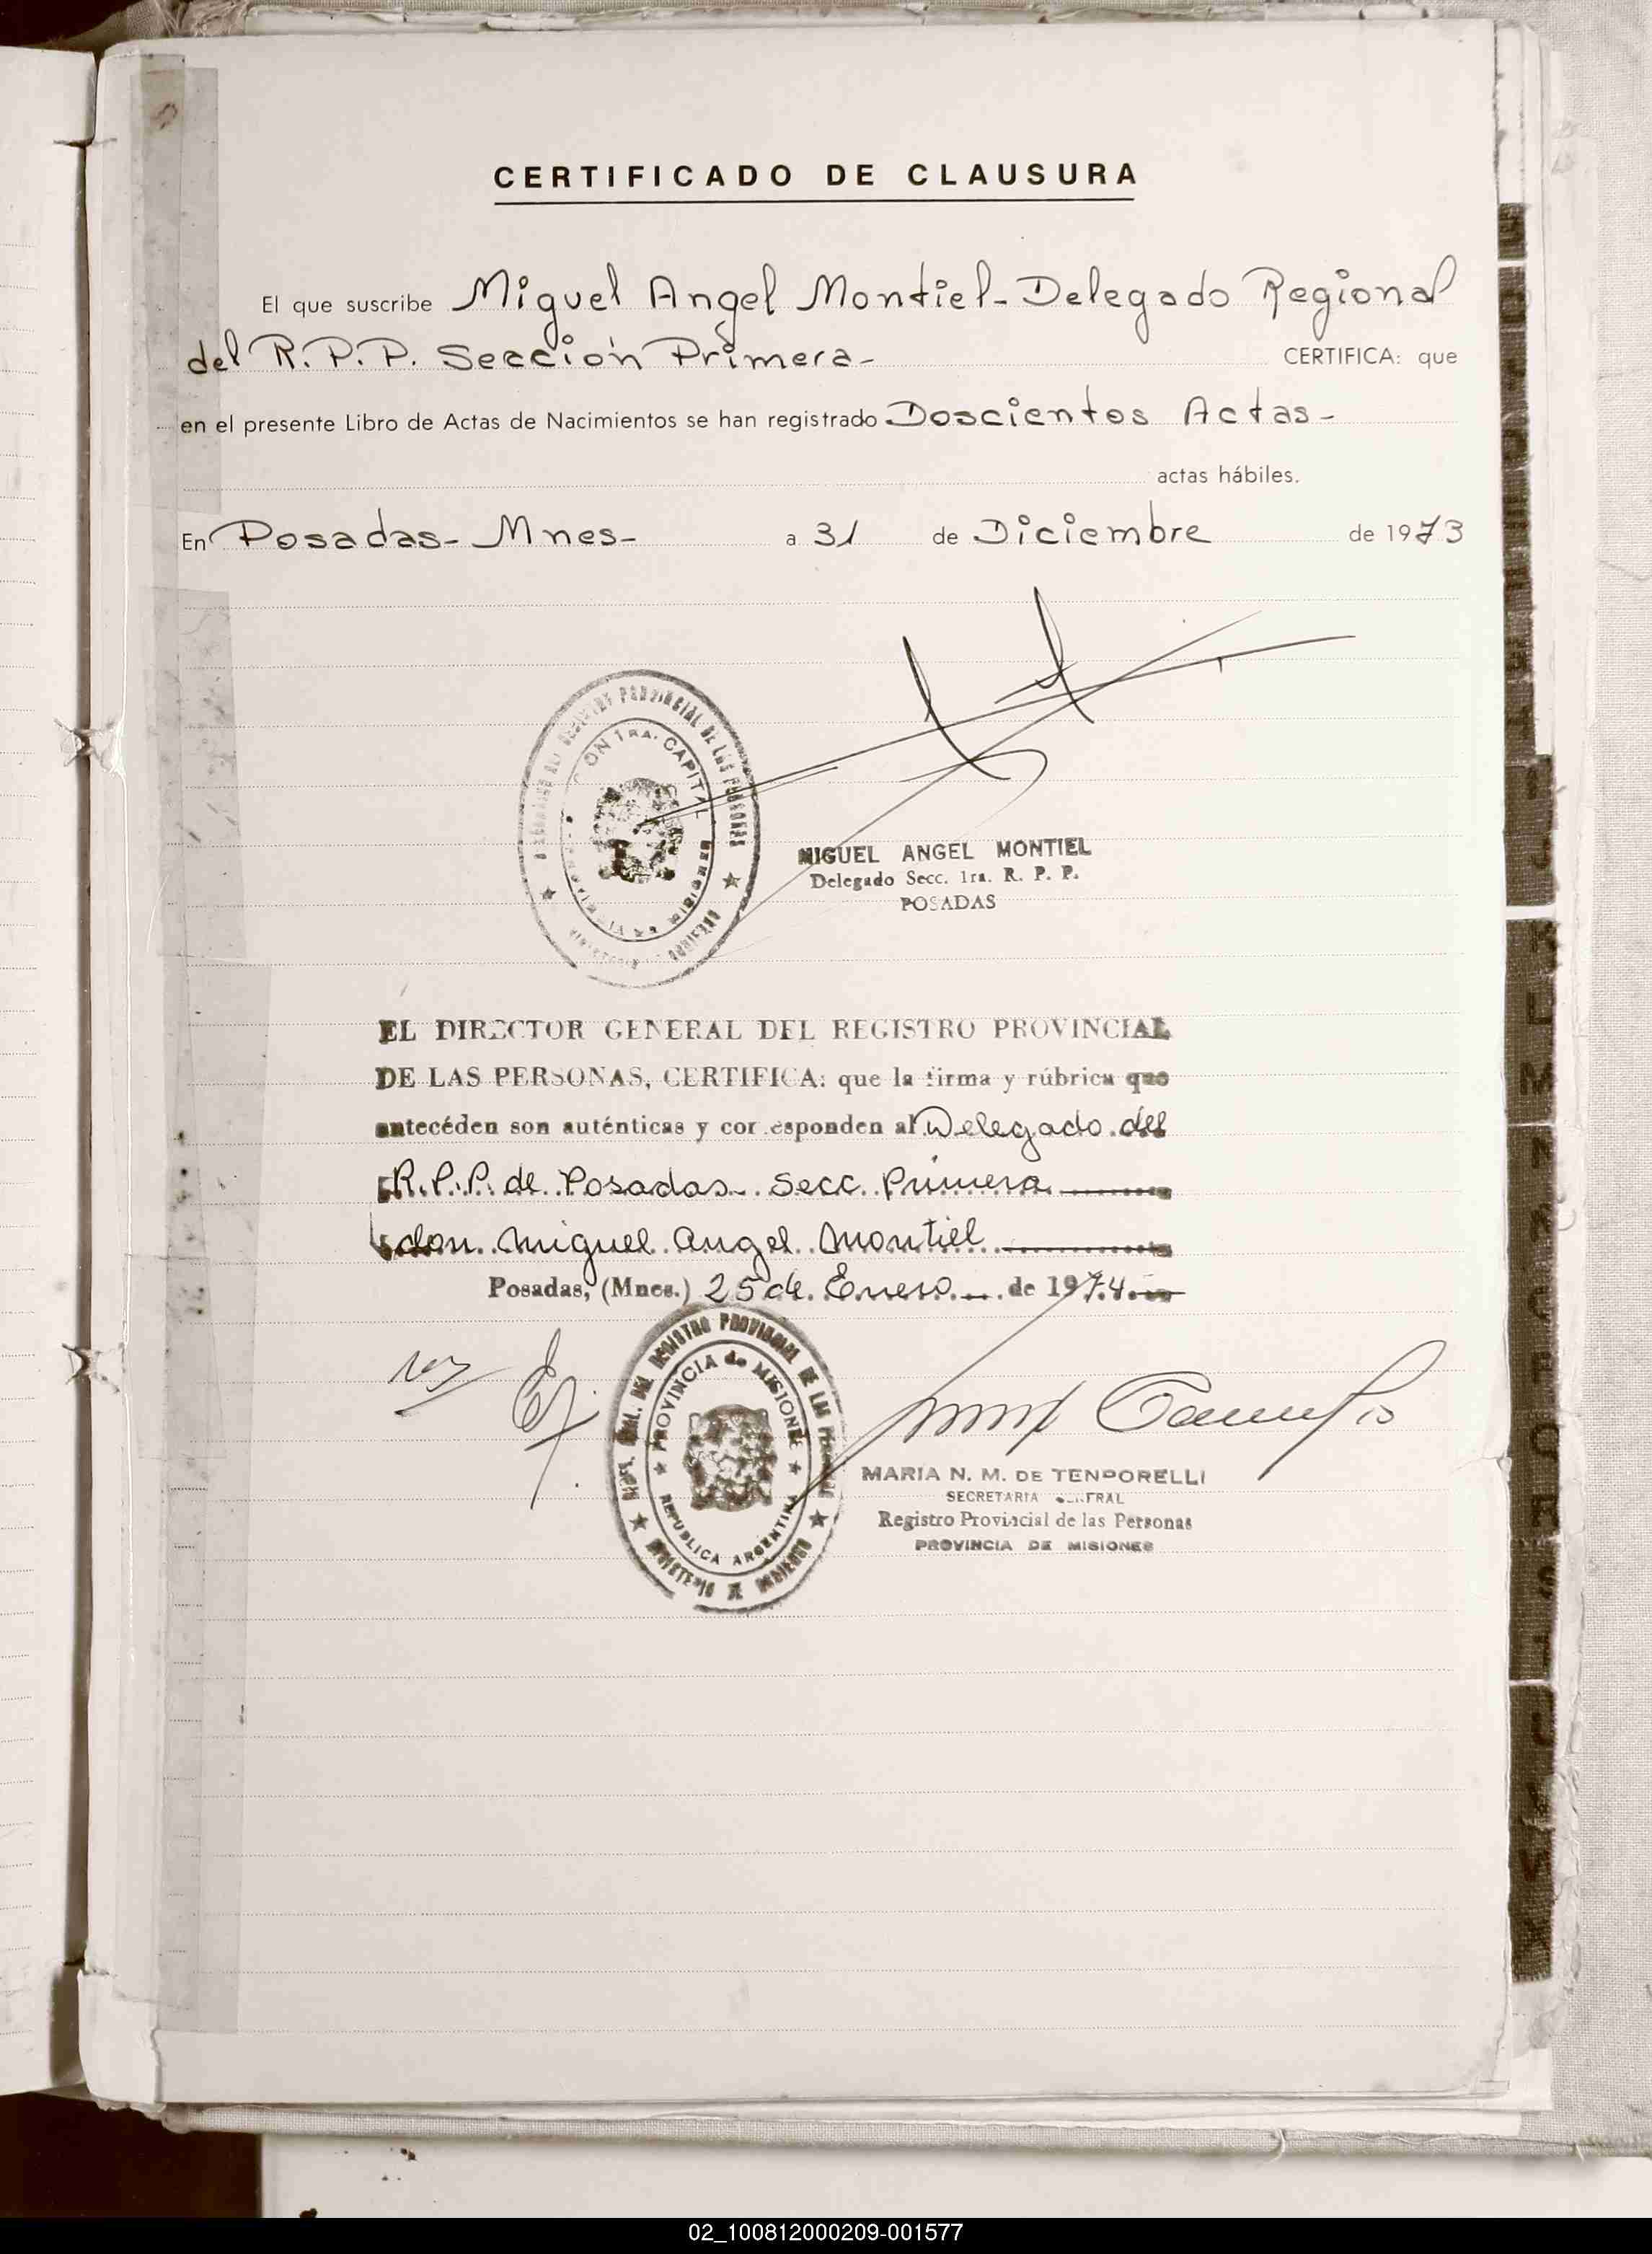 CERTIFICADO DE CLAUSURA
El que suscribe Miguel Angel Montiel - Delegado Regional
del R.P.P. Sección Primera - CERTIFICA: que
en el presente Libro de Actas de Nacimientos se han registrado Doscientos Actas -
actas hábiles.
En Posadas - Mnes - a 31 de Diciembre de 1973
PROVINCIAL DE LAS PERSONAS
1RA. CAPITAL
MIGUEL ANGEL MONTIEL
Delegado Secc. 1ra. R. P. P.
POSADAS
EL DIRECTOR GENERAL DEL REGISTRO PROVINCIAL
DE LAS PERSONAS, CERTIFICA: que la firma y rúbrica que
antecéden son auténticas y corresponden al Delegado del
R.P.P. de Posadas - Secc. Primera
don Miguel Angel Montiel
Posadas, (Mnes.) 25 de Enero de 1974
GRAL. DEL REGISTRO PROVINCIAL DE LAS PERSONAS
PROVINCIA de MISIONES
REPUBLICA ARGENTINA
MINISTERIO DE GOBIERNO
MARIA N. M. DE TEMPORELLI
SECRETARIA GENERAL
Registro Provincial de las Personas
PROVINCIA DE MISIONES
02_100812000209-001577